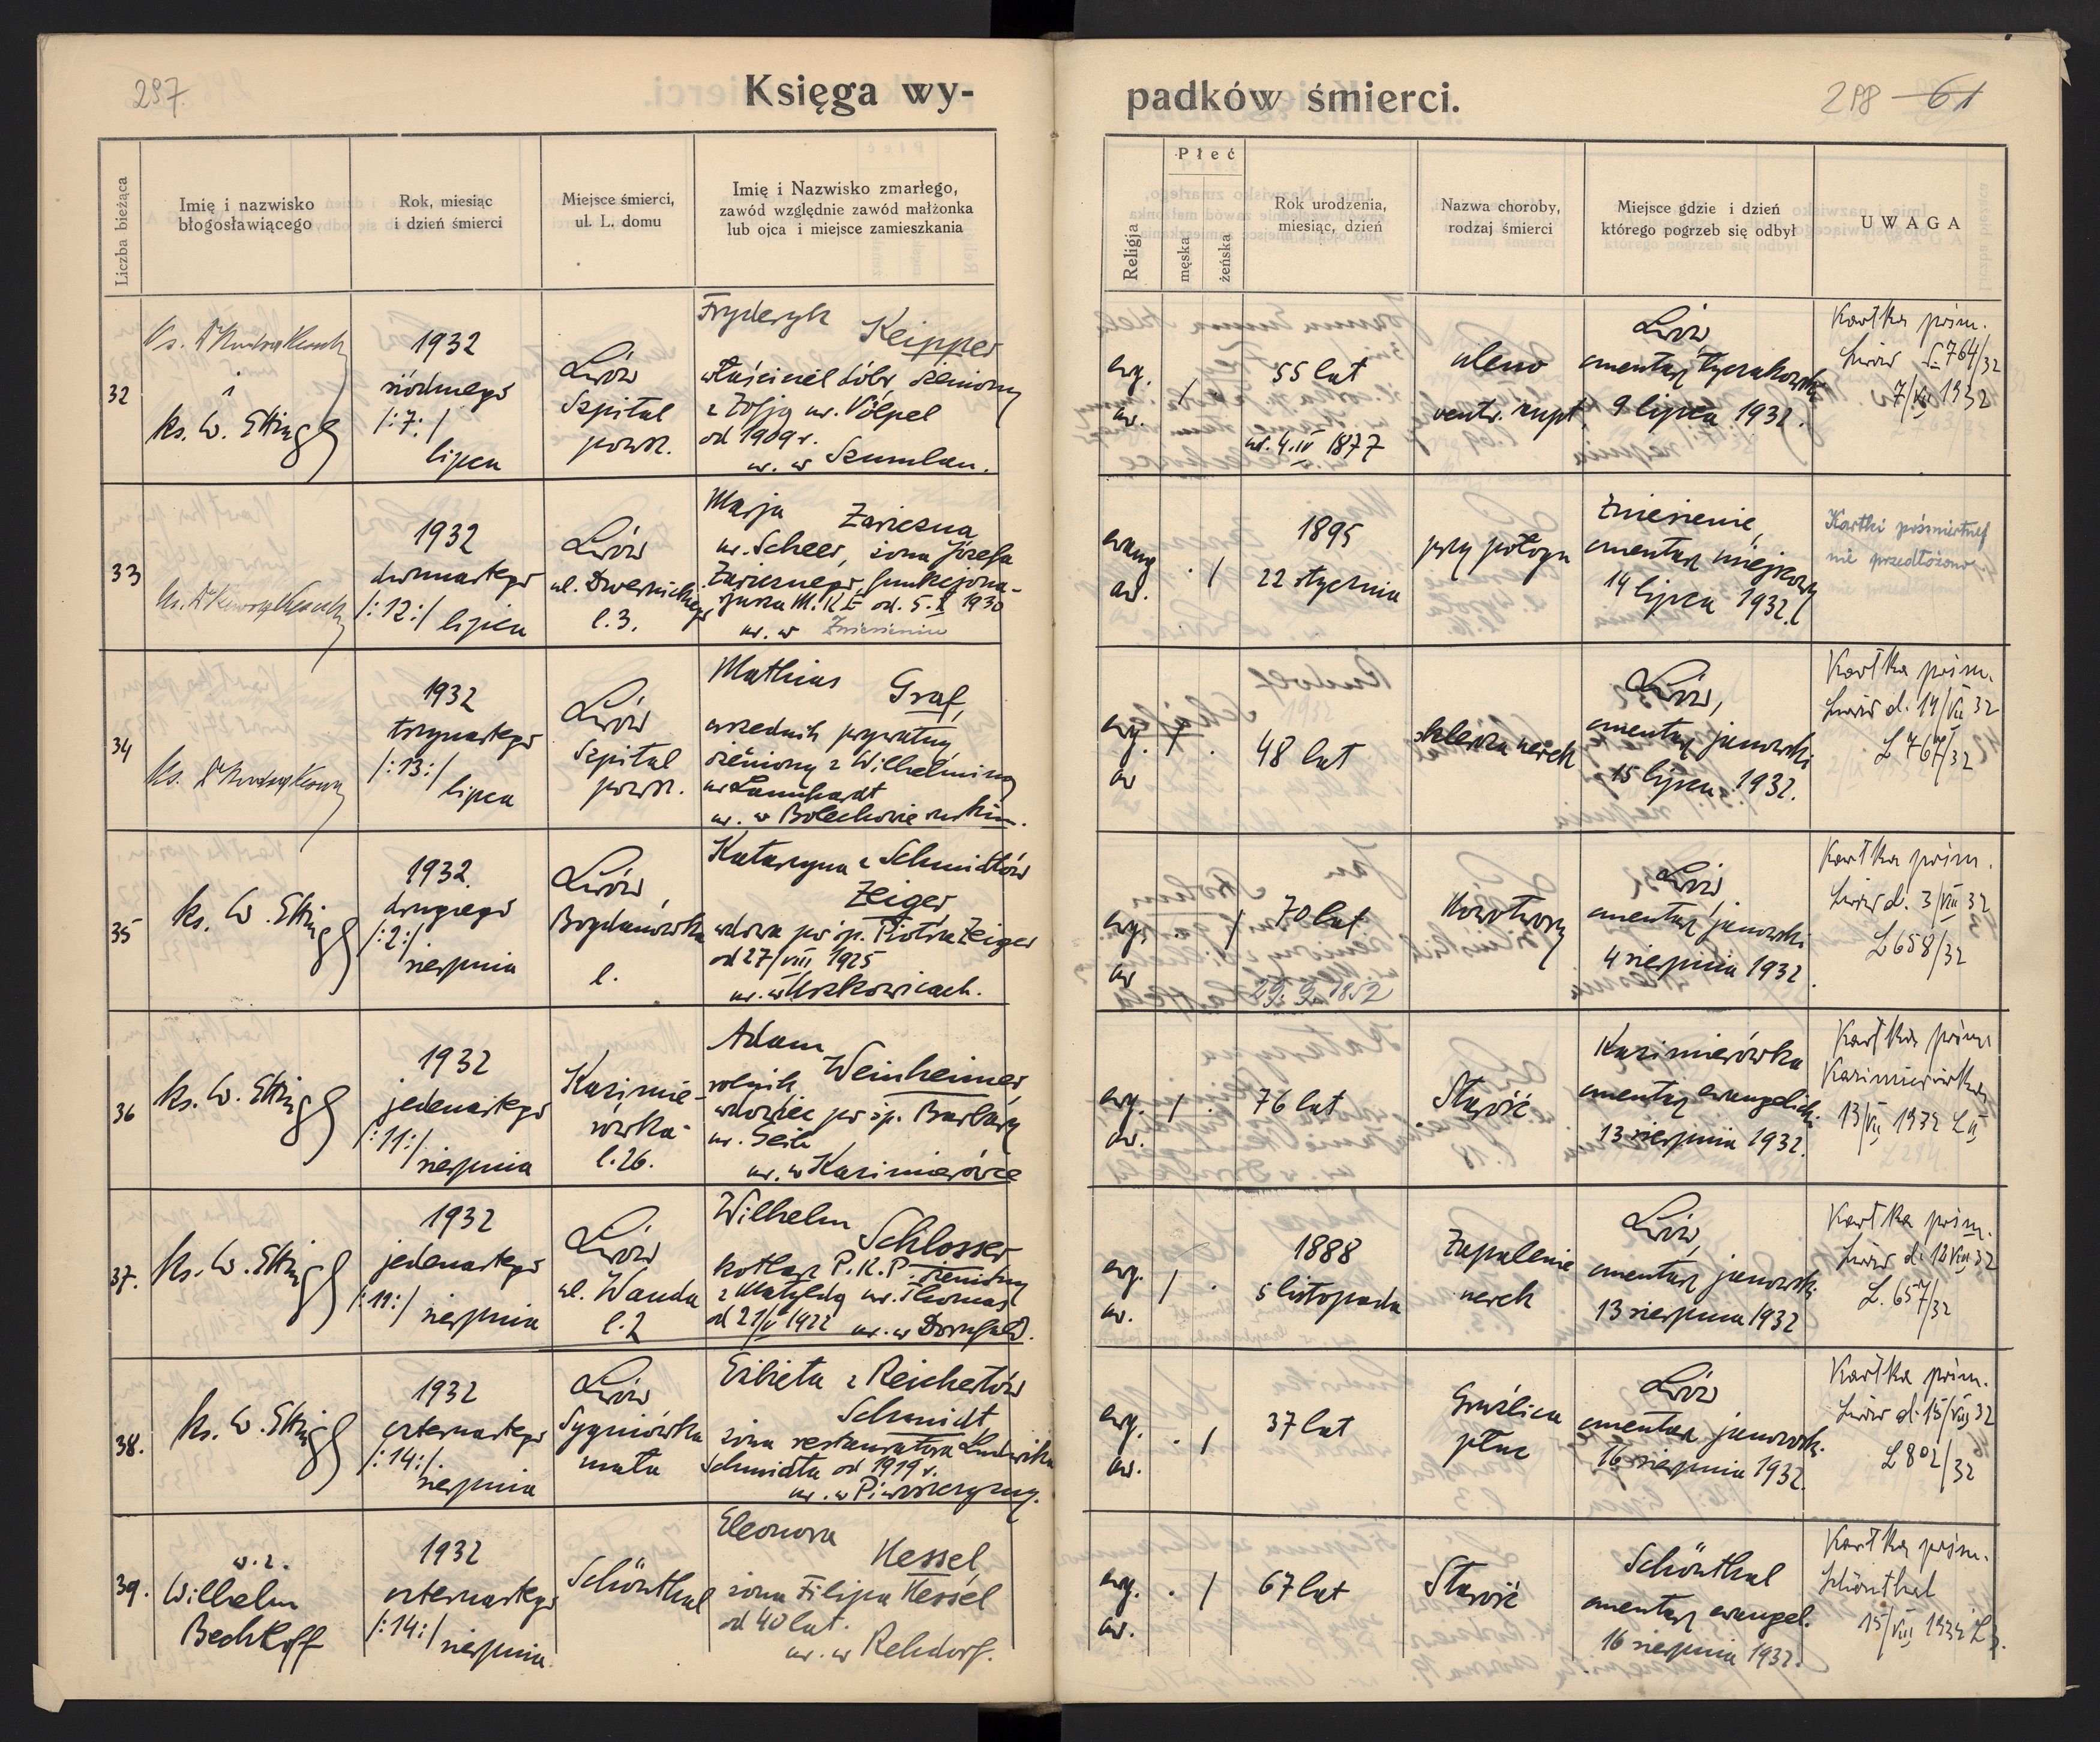 297.
Księga wy-
Liczba bieżąca
Imię i nazwisko
błogosławiącego
Rok, miesiąc
i dzień śmierci
Miejsce śmierci,
ul. L. domu
Imię i Nazwisko zmarłego,
zawód względnie zawód małżonka
lub ojca i miejsce zamieszkania
32
i
ks. W. Ettinger
1932
siódmego
/:7:/
lipca
Lwów
Szpital
powsz.
Fryderyk
Keipper
właściciel dóbr żeniony
z Zofją ur. Völpel
od 1909 r.
ur. w Szumlau.
33
1932
dwunastego
/:12:/ lipca
Lwów
ul. Dwernickiego
l. 3.
Marja Zariczna
ur. Scheer, żona Józefa
Zaricznego funkcjona-
rjusza M.K.E od. 5.X 1930
ur. w Zniesieniu
34
1932
trzynastego
/:13:/
lipca
Lwów
Szpital
powsz.
Mathias
Graf,
urzednik prywatny,
żeniony z Wilhelminą
ur. Launhardt
ur. w Bolechowie ruskim.
35
ks. W. Ettinger
1932.
drugiego
/:2:/
sierpnia
Lwów
Bogdanówka
l.
Katarzyna z Schmidtów
Zeiger
wdowa po śp. Piotrze Zeiger
od 27/VIII 1925
ur. w Uszkowicach.
36
ks. W. Ettinger
1932
jedenastego
/:11:/
sierpnia
Kazimie-
rówka
l. 26.
Adam
Weinheimer
rolnik
wdowiec po śp. Barbary
ur. Seib
ur. w Kazimierówce
37.
ks. W. Ettinger
1932
jedenastego
/:11:/ sierpnia
Lwów
ul. Wanda
l. 2
Wilhelm
Schlosser
kotlarz P.K.P. żeniony
z Matyldą ur. Thomas
od 21/V 1922 ur. w Dornfeld.
38.
ks. W. Ettinger
1932
czternastego
/:14:/
sierpnia
Lwów
Sygniówka
mała
Elżbieta z Reichertów
Schmidt
żona restauratora Ludwika
Schmidta od 1919 r.
ur. w Piwoszczyzny.
39.
w. z.
Wilhelm
Bechtloff
1932
czternastego
/:14:/ sierpnia.
Schönthal
Eleonora
Hessel,
żona Filipa Hessel
od 40 lat.
ur. w Rehdorf.
padków śmierci.
298 61
Religja
Płeć
męska
żeńska
Rok urodzenia,
miesiąc, dzień
Nazwa choroby,
rodzaj śmierci
Miejsce gdzie i dzień
którego pogrzeb się odbył
UWAGA
ewg.
aw.
/
55 lat
ur. 4.IV 1877
ulcus
ventr. rupt.
Lwów
cmentarz łyczakowski
9 lipca 1932.
Kartka pośm.
Lwów L. 764/32
7/VII 1932
ewang
aw.
. /
1895
22 stycznia
przy połogu
Zniesienie,
cmentarz miejscowy
14 lipca 1932.
Kartki pośmiertnej
nie przedłożono
ewg.
aw
/ .
48 lat
skleroza nerek
Lwów,
cmentarz janowski
15 lipca 1932.
Kartka pośm.
Lwów d. 14/VII 32
L 767/32
ewg.
aw
. /
70 lat.
29. 9. 1852
Nowotwory
Lwów
cmentarz janowski
4 sierpnia 1932.
Kartka pośm.
Lwów d. 3/VIII 32
L 658/32
ewg.
aw.
/ .
76 lat
Starość
Kazimierówka
cmentarz ewangelicki
13 sierpnia 1932.
Kartka pośm.
Kazimierówka
ewg.
aw.
/ .
1888
5 listopada
Zapalenie
nerek
Lwów,
cmentarz janowski
13 sierpnia 1932
Kartka pośm.
Lwów d. 12 VIII 32
L. 657/32
ewg.
aw.
. /
37 lat
Gruźlica
płuc
Lwów
cmentarz janowski.
16 sierpnia 1932.
Kartka pośm.
Lwów d. 15/VIII 32
L 802/32
ewg.
aw.
. /
67 lat
Starość
Schönthal
cmentarz ewangel.
16 sierpnia 1932.
Kartka pośm.
Schönthal
15/VIII 1932